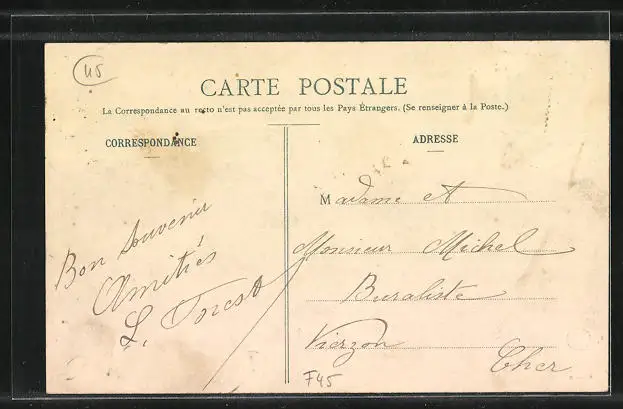 45
CARTE POSTALE
La Correspondance au recto n'est pas acceptée par tous les Pays Étrangers. (Se renseigner à la Poste.)
CORRESPONDANCE
Bon Souvenir
Amitiés
L. Forest
ADRESSE
Madame et
Monsieur Michel
Buraliste
Vierzon
Cher
F45